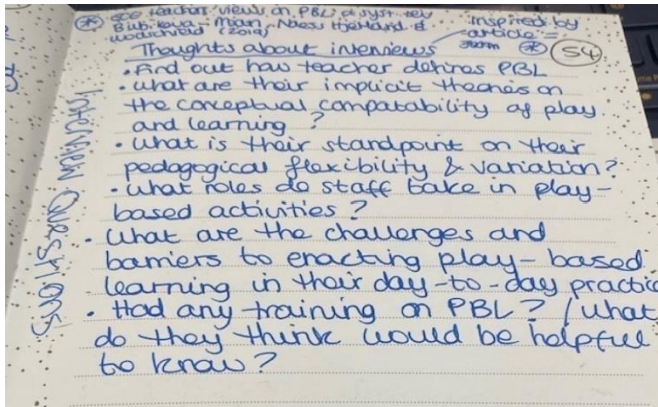 * ECE teachers' views on PBL: a syst. rev
Bubikova-Moan, Næss Hjetland &
Wollscheid (2019)
Inspired by
article =
from *
54
Thoughts about interviews
• Find out how teacher defines PBL
• what are their implicit theories on
the conceptual compatability of play
and learning?
• What is their standpoint on their
pedagogical flexibility & variation?
• What roles do staff take in play-
based activities?
• What are the challenges and
barriers to enacting play-based
learning in their day-to-day practic
• Had any training on PBL? / what
do they think would be helpful
to know?
Interview Questions